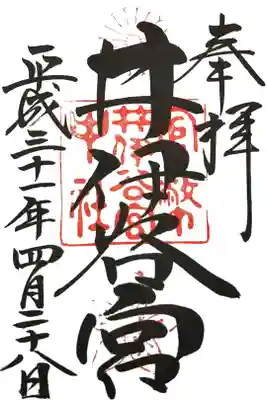 奉拝
井伊谷宮
平成三十一年四月二十八日